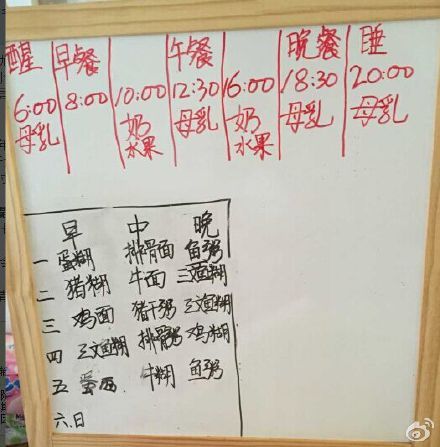 醒 早餐 午餐 晚餐 睡
6:00 8:00 10:00 12:30 16:00 18:30 20:00
母乳 奶 水果 母乳 奶 水果 母乳 母乳
早 中 晚
一 蛋糊 排骨面 鱼粥
二 猪糊 牛面 三文鱼糊
三 鸡面 猪干粥 三文鱼糊
四 三文鱼糊 排骨粥 鸡糊
五 蛋面 牛糊 鱼粥
六.日